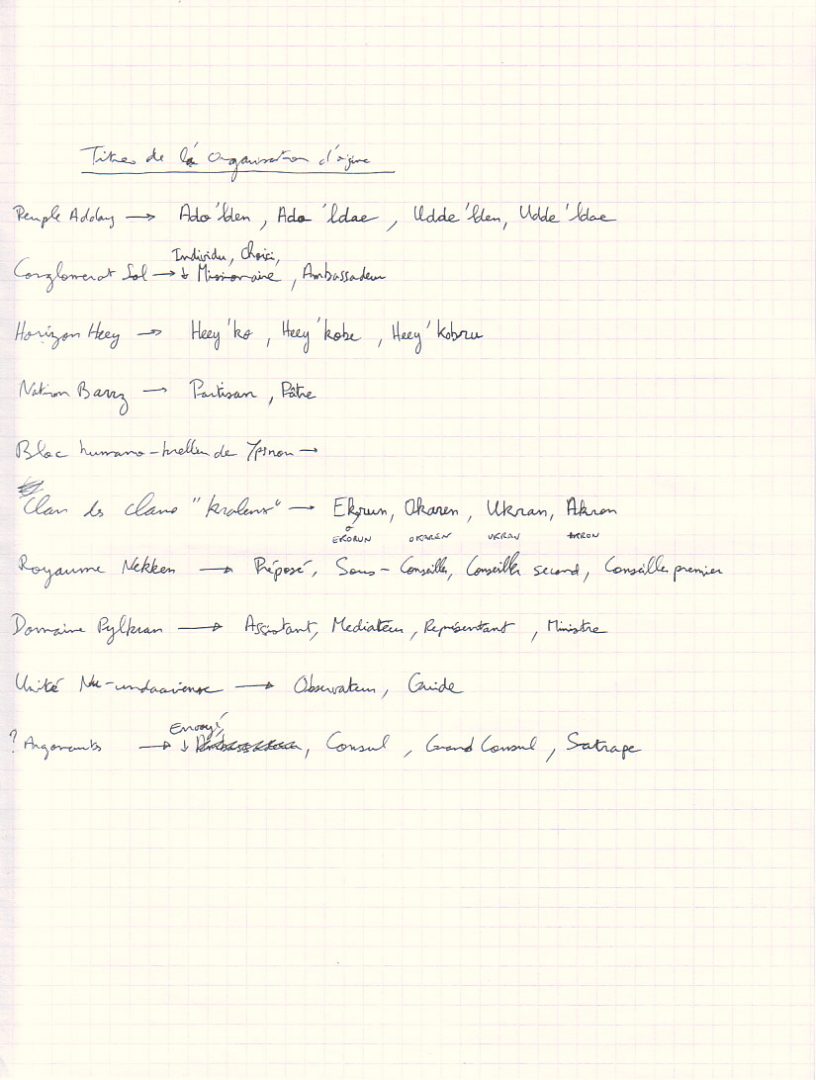 Titres de la organisation d'origine
Peuple Addany → Ado'lden, Ado'ldae, Udde'lden, Udde'ldae
Individu, Choisi,
Conglomerat Sol → ↓ Missionaire, Ambassadeur
Horizon Heey → Heey'ko, Heey'kobe, Heey'kobru
Nation Barrz → Partisan, Pâtre
Bloc humano- de →
Clan des clans "krolens" → Ekrun, Okaren, Ukran, Akron
o
EKORUN OKAREN UKRAN AKRON
Royaume Nekken → Préposé, Sous-Conseiller, Conseiller second, Conseiller premier
Domaine Pylkran → Assistant, Mediateur, Représentant, Ministre
Unité → Observateur, Guide
Envoyé,
? → ↓ , Consul, Grand Consul, Satrape